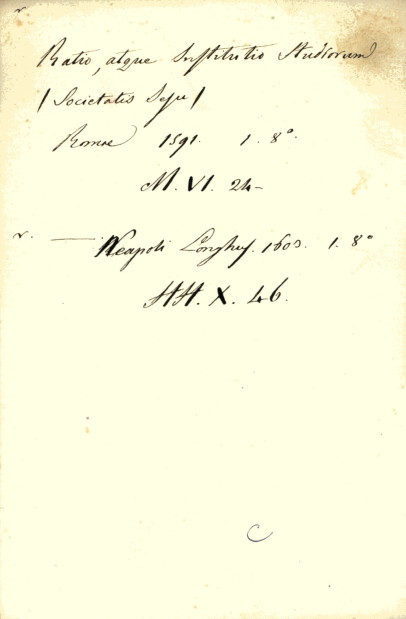 Ratio, atque Institutio Studiorum
/ Societatis Jesu /
Romae 1591. 1. 8°.
M. VI. 24-
r. — Neapoli Longhus. 1603. 1. 8°
HH. X. 46.
C